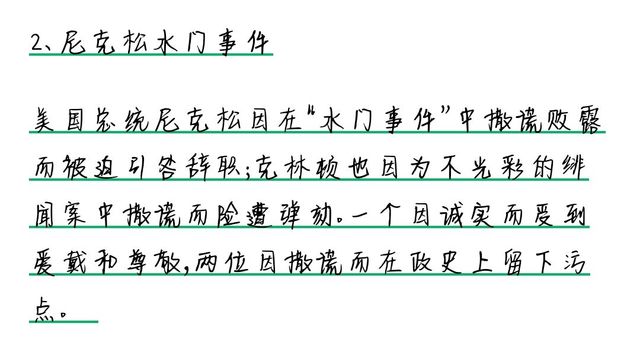 2、尼克松水门事件
美国总统尼克松因在“水门事件”中撒谎败露
而被迫引咎辞职;克林顿也因为不光彩的绯
闻案中撒谎而险遭弹劾。一个因诚实而受到
爱戴和尊敬,两位因撒谎而在政史上留下污
点。